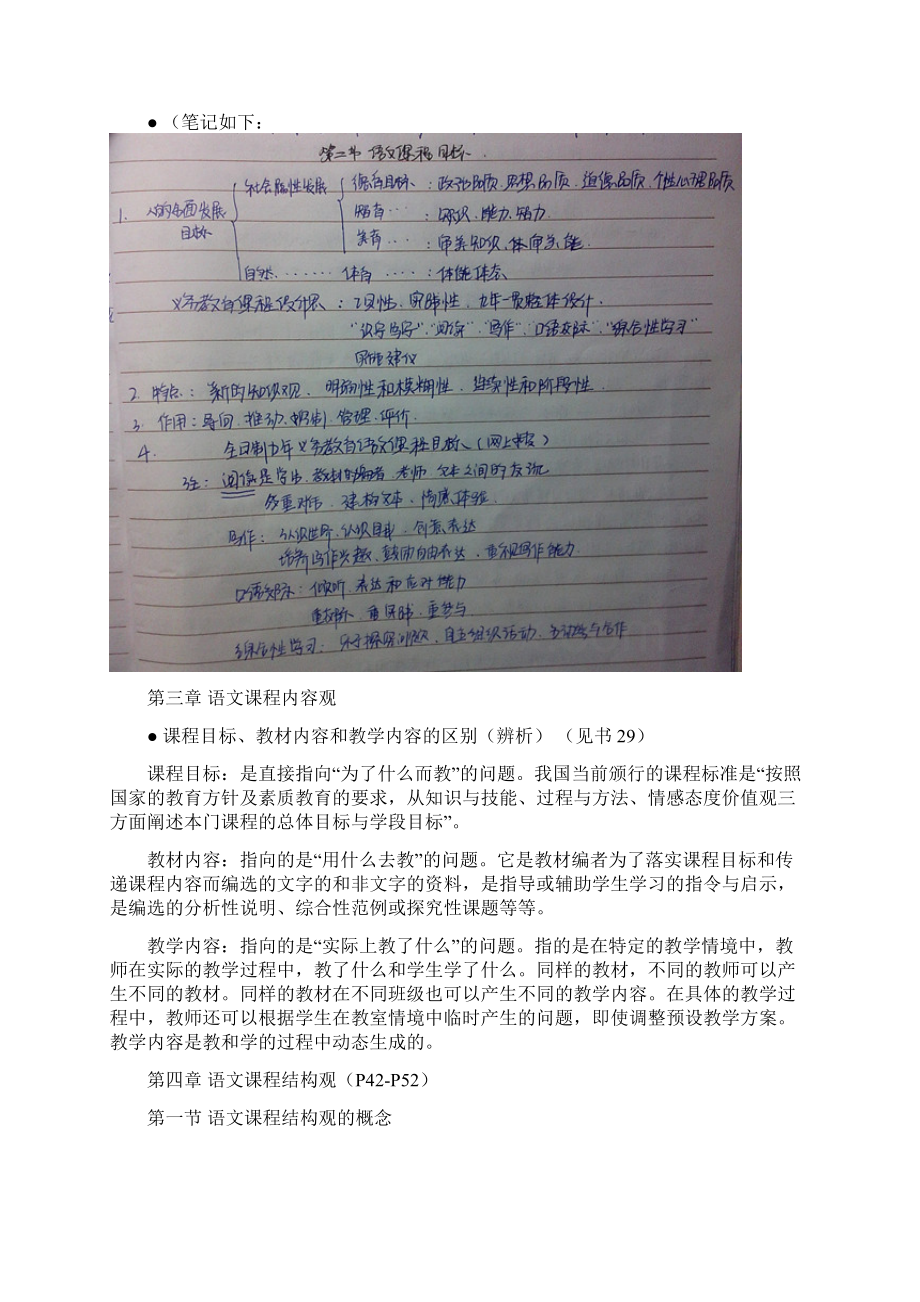 ● （笔记如下：
第二节 语文课程目标.
社会属性发展 德育目标：政治品质.思想品质.道德品质.个性心理品质
1. 人的全面发展 智育…：知识.能力.智力
目标 美育…：审美知识.体审美能.
自然……. 体育….：体能体态
义务教育课程设计思：工具性.实践性.九年一贯整体设计.
“识字写字”.“阅读”.“写作”.“口语交际”.“综合性学习”
建议
2. 特点：新的知识观、明确性和模糊性.连续性和阶段性.
3. 作用：导向.推动.控制.管理.评价.
4. 全日制九年义务教育语文课程目标（网上）
注：阅读是学生.教材编者.老师.文本之间的交流
多重对话.建构文本.情感体验.
写作：认识世界.认识自我.创意表达
培养写作兴趣.鼓励自由表达.重视写作能力.
口语交际：倾听.表达和应对能力
重实践.重参与
综合性学习：乐于探究问题.自主组织活动.与合作
第三章 语文课程内容观
● 课程目标、教材内容和教学内容的区别（辨析） （见书 29）
课程目标：是直接指向“为了什么而教”的问题。我国当前颁行的课程标准是“按照
国家的教育方针及素质教育的要求，从知识与技能、过程与方法、情感态度价值观三
方面阐述本门课程的总体目标与学段目标”。
教材内容：指向的是“用什么去教”的问题。它是教材编者为了落实课程目标和传
递课程内容而编选的文字的和非文字的资料，是指导或辅助学生学习的指令与启示，
是编选的分析性说明、综合性范例或探究性课题等等。
教学内容：指向的是“实际上教了什么”的问题。指的是在特定的教学情境中，教
师在实际的教学过程中，教了什么和学生学了什么。同样的教材，不同的教师可以产
生不同的教材。同样的教材在不同班级也可以产生不同的教学内容。在具体的教学过
程中，教师还可以根据学生在教室情境中临时产生的问题，即使调整预设教学方案。
教学内容是教和学的过程中动态生成的。
第四章 语文课程结构观（P42-P52）
第一节 语文课程结构观的概念